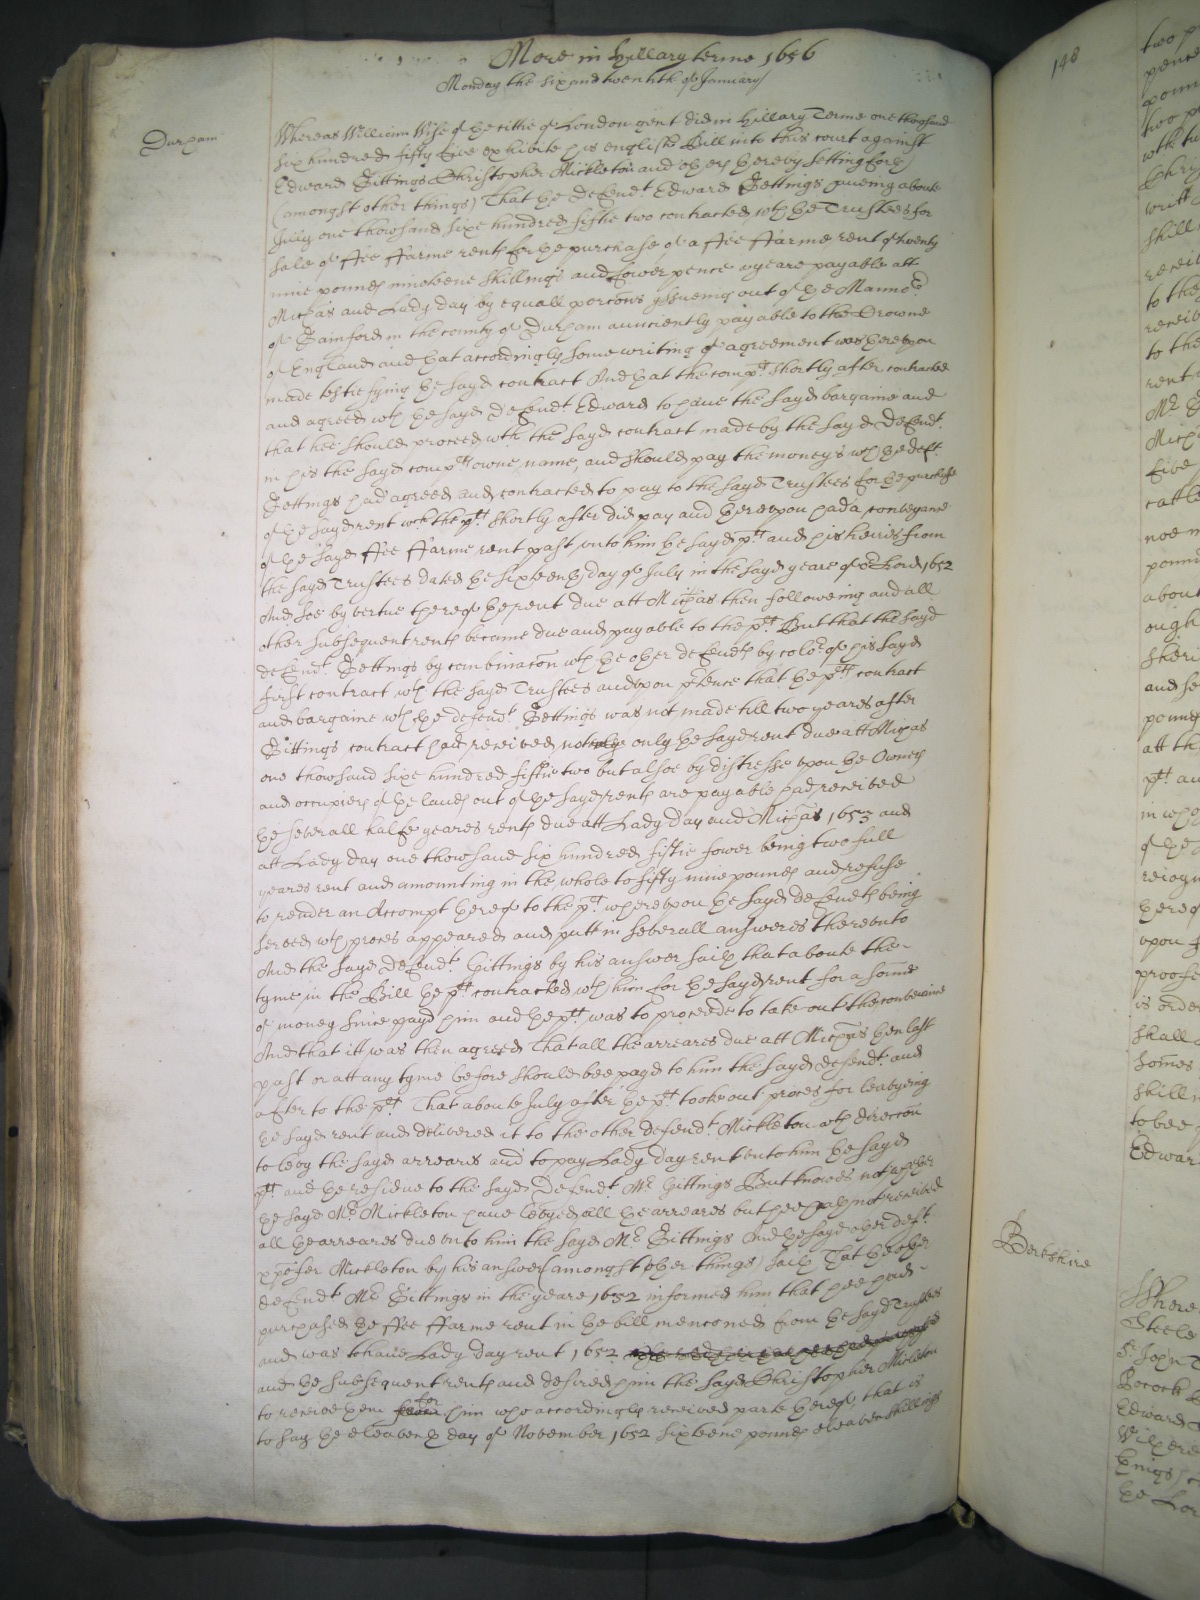 More in Hillary terme 1656
Monday the six and twentith of January
Durham
Whereas William Wise of the cittie of London gent did in Hillary Terme one thousand
six hundred fifty five exhibite his english Bill into this court against
Edward Gittings Christopher Mickleton and others thereby setting forth
(amongst other things) That the defendt Edward Gettings having aboute
July one thowsand sixe hundred fiftie two contracted wth the Trustees for
sale of ffee ffarme rents for the purchase of a ffee ffarme rent of twenty
nine pounds nineteene shillings and fower pence a yeare payable att
Michas and Lady day by equall porcons yssueing out of the Mannor
of Gainford in the county of Durham aunciently payable to the Crowne
of England and that accordingly some writing of agreement was thereupon
made testiefying the sayd contract And that the compt shortly after contracted
and agreed wth the sayd defendt Edward to have the sayd bargaine and
that hee should proceed wth the sayd contract made by the sayd defendt
in his the sayd complts owne name, and should pay the moneys wch the deft
Gettings had agreed and contracted to pay to the sayd Trustees for the purchase
of the sayd rent wch the plt shortly after did pay and thereupon had a conveyance
of the sayd ffee ffarme rent past unto him the sayd plt and his heires from
the sayd Trustees dated the sixteenth day of July in the sayd yeare of or Lord 1652
And soe by vertue thereof the rent due att Michas then followeing and all
other subsequent rents became due and payable to the plt But that the sayd
defendt Gettings by combinacon wth the other defendts by color of his sayd
first contract wth the sayd Trustees and upon prtence that the plts contract
and bargaine wth the defendt Gettings was not made till two yeares after
Gittings contract had received not only the sayd rent due att Michas
one thowsand sixe hundred fiftie two but alsoe by distresse upon the Owners
and occupiers of the lands out of the sayd rents are payable had received
the severall halfe yeares rents due att Lady day and Michas 1653 and
att Lady day one thowsand six hundred fiftie fower being two full
yeares rent and amounting in the whole to fifty nine pounds and refuse
to render an Accompt thereof to the plt whereupon the sayd defendts being
served wth proces appeared and putt in severall answeres thereunto
And the sayd defendt Gittings by his answer saith that aboute the
tyme in the Bill the plt contracted wth him for the sayd rent for a somme
of money since payd him and the plt was to proceede to take out the conveiance
And that itt was then agreed That all the arreares due att Michas then last
past or att any tyme before should bee payd to him the sayd defendt and
after to the plt That aboute July after the plt tooke out proces for leavyeing
the sayd rent and delivered it to the other defendt Mickleton wth direccon
to levy the sayd arreares and to pay Lady day rent unto him the sayd
plt and the residue to the sayd defendt Mr Gittings But knowes not whether
the sayd Mr Mickleton have levyed all the arreares but hee hath not received
all the arreares due unto him the sayd Mr Gittings And the sayd other deft
xpofer Mickleton by his answer (amongst other things) saith That the other
defendt Mr Gittings in the yeare 1652 informed him that hee had
purchased the ffee ffarme rent in the bill menconed from the sayd Trustees
and was to have Lady day rent 1652
and the subsequent rents and desired him the sayd Christopher Micleton
to receive them for him who accordingly received parte thereof, that is
to say the eleaventh day of November 1652 sixteene pounds eleaven shillings
148
Berkshire